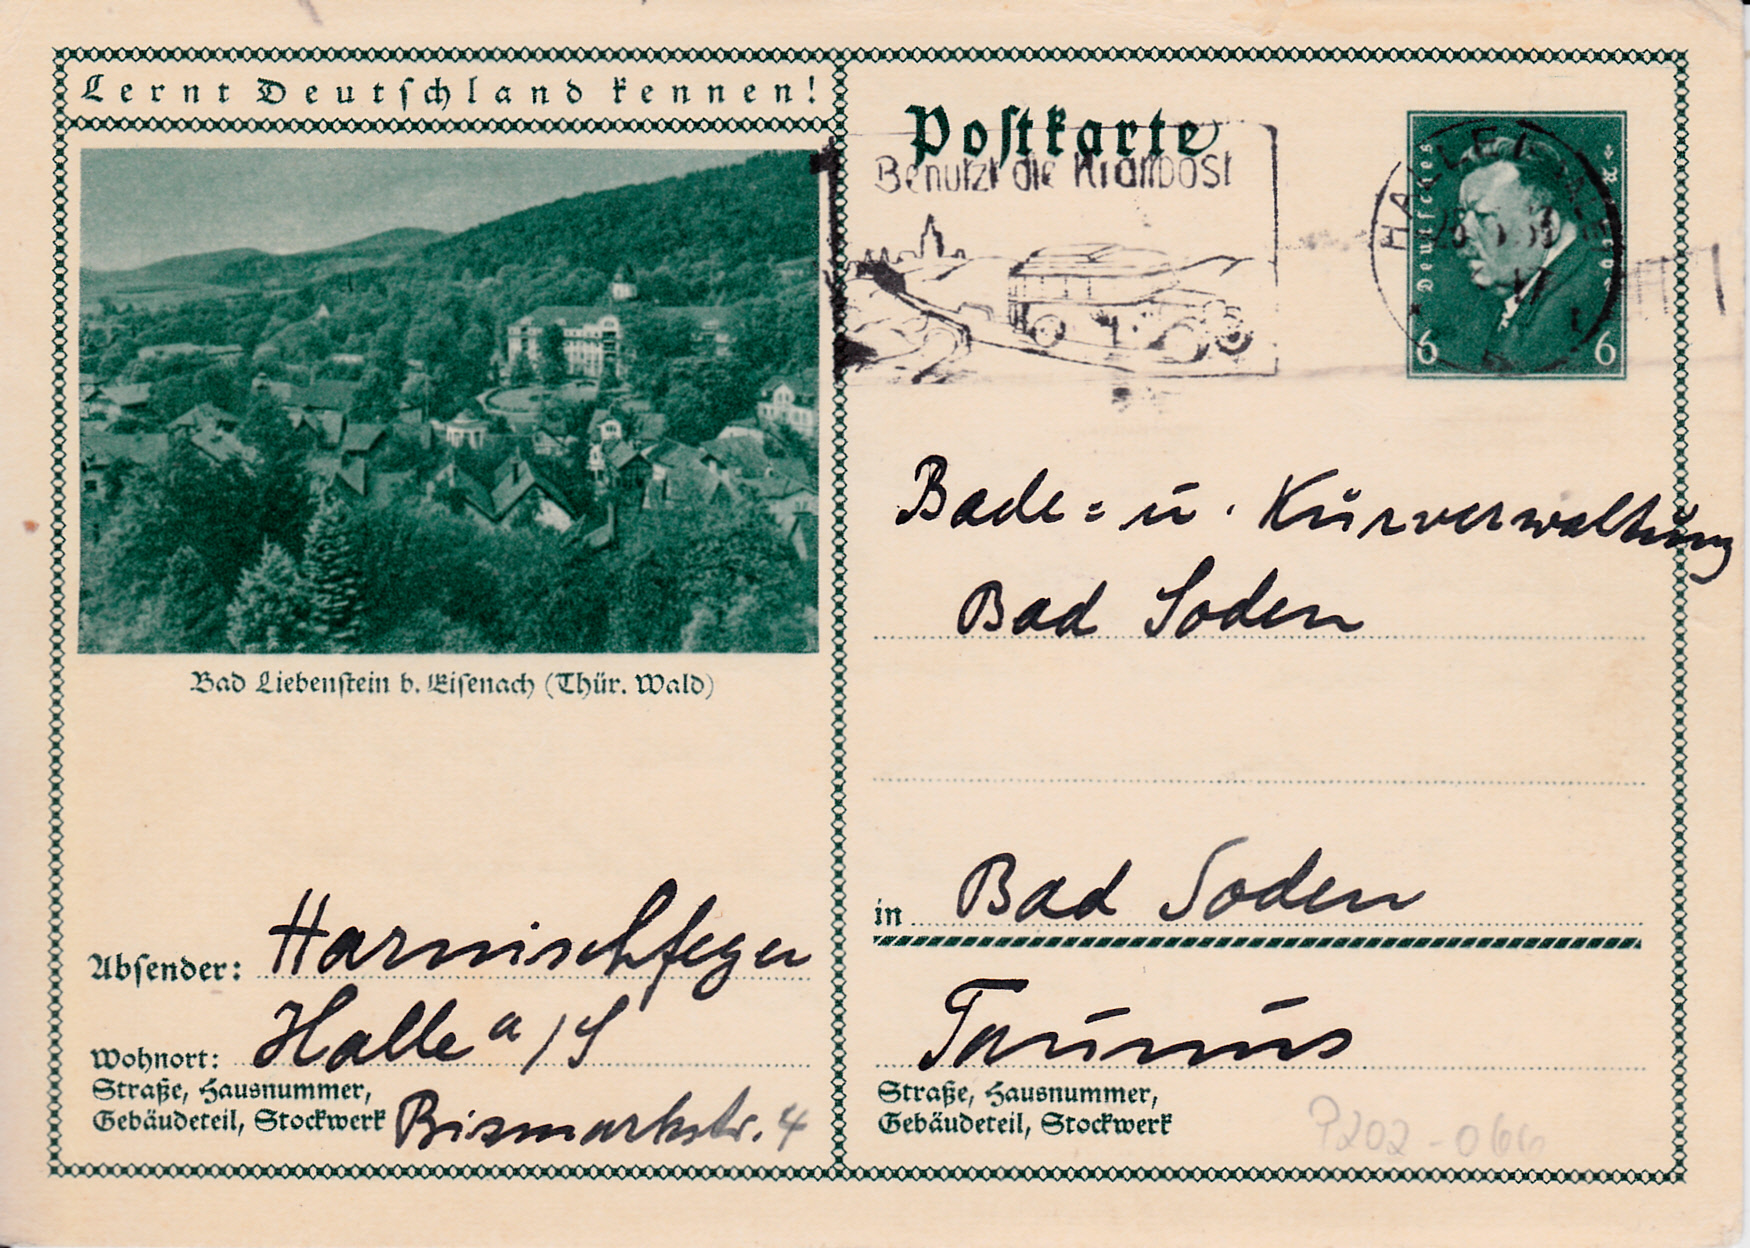 Lernt Deutschland kennen!
Bad Liebenstein b. Eisenach (Thür. Wald)
Absender: Harnischfeger
Wohnort: Halle a/S
Straße, Hausnummer,
Gebäudeteil, Stockwerk Bismarkstr. 4
Postkarte
Benutzt die Kraftpost
Deutsches Reich
6 6
HALLE
Bade= u. Kurverwaltung
Bad Soden
in Bad Soden
Taunus
Straße, Hausnummer,
Gebäudeteil, Stockwerk
P202-066